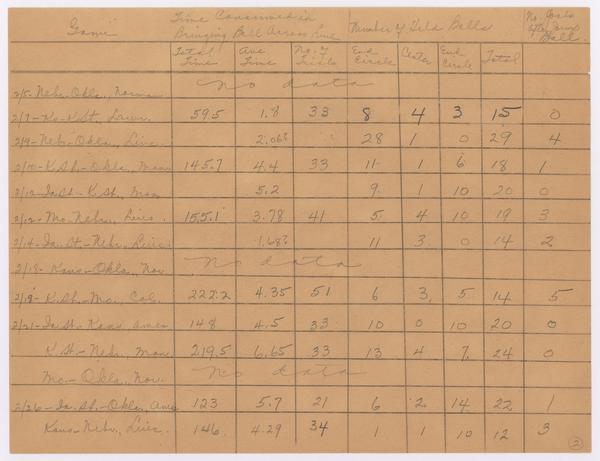 Game Time Consumed in Bringing Ball Across Line Number of Held Balls No. Goals After Jump Ball.
Total Time Ave Time No. of Trials End Circle Center End Circle Total
2/5- Nebr-Okla., Norman No data
2/7- Ka-K.St., Lawr. 59.5 1.8 33 8 4 3 15 0
2/9- Nebr-Okla., Linc. 2.06? 28 1 0 29 4
2/10- K.St.-Okla., Man 145.7 4.4 33 11 1 6 18 1
2/12- Ia.St.-K.St., Man 5.2 9 1 10 20 0
2/12- Mo.-Nebr., Linc. 155.1 3.78 41 5 4 10 19 3
2/14- Ia. St.-Nebr., Linc. 1.68? 11 3 0 14 2
2/18- Kans-Okla., Nor. No data
2/18- K.St.-Mo., Col. 222.2 4.35 51 6 3 5 14 5
2/21- Ia.St.-Kans., Ames 148 4.5 33 10 0 10 20 0
K.St.-Nebr., Man. 219.5 6.65 33 13 4 7 24 0
Mo.-Okla., Nor. No data
2/26- Ia.St.-Okla., Ames 123 5.7 21 6 2 14 22 1
Kans-Nebr., Linc. 146 4.29 34 1 1 10 12 3
3